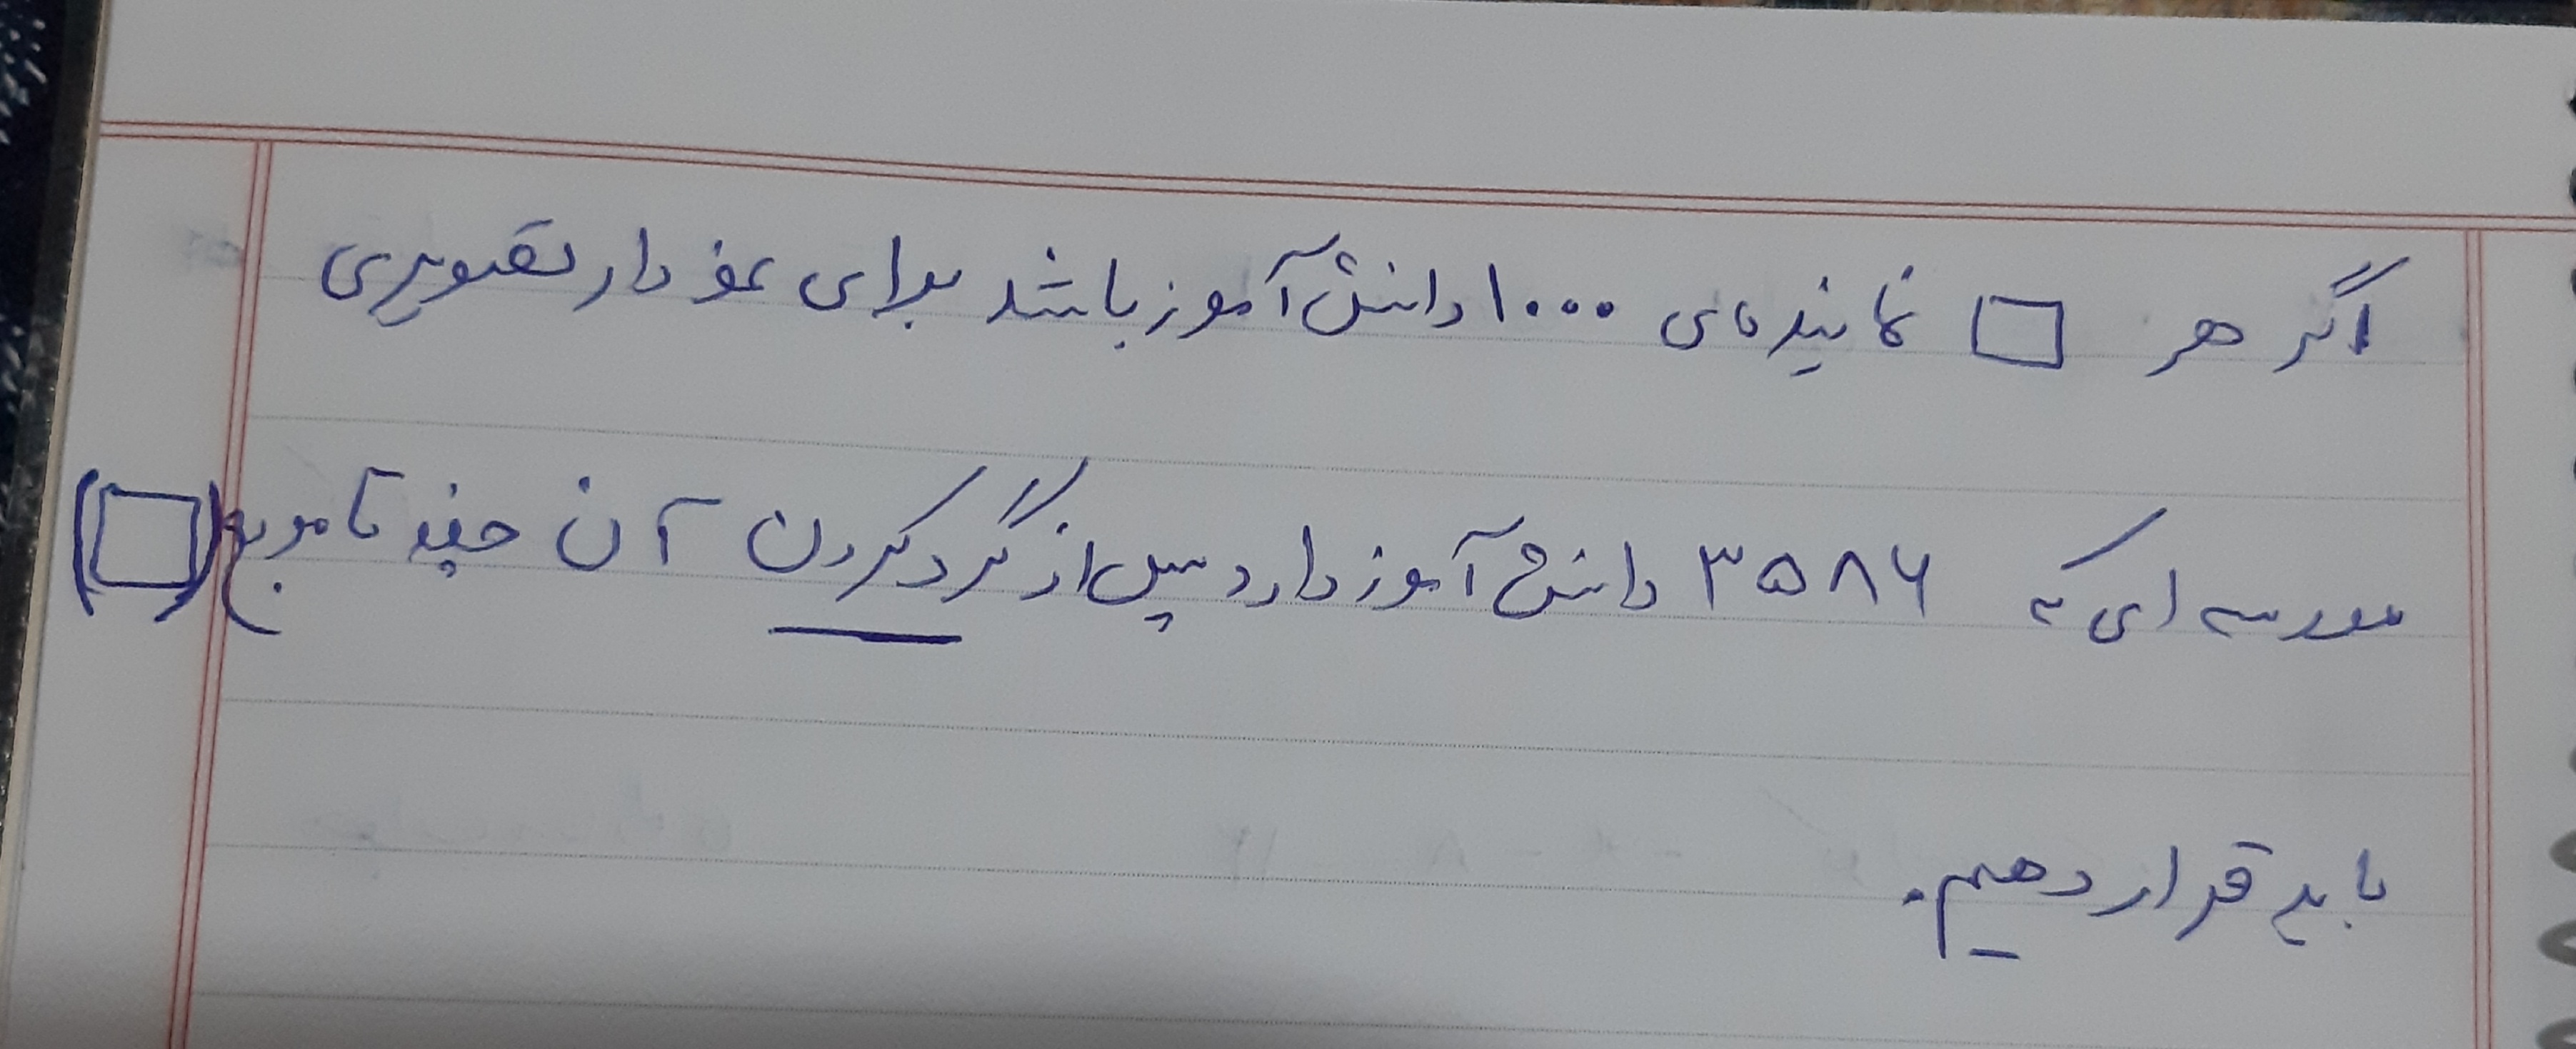 اگر هر □ نماینده‌ی ۱۰۰۰ دانش آموز باشد برای نمودار تصویری
مدرسه ای که ۳۵۸۶ دانش آموز دارد پس از گرد کردن آن چند تا مربع (□)
باید قرار دهیم.